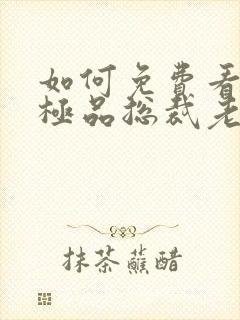 如何免費看
極品総裁老
抹茶蘸醋